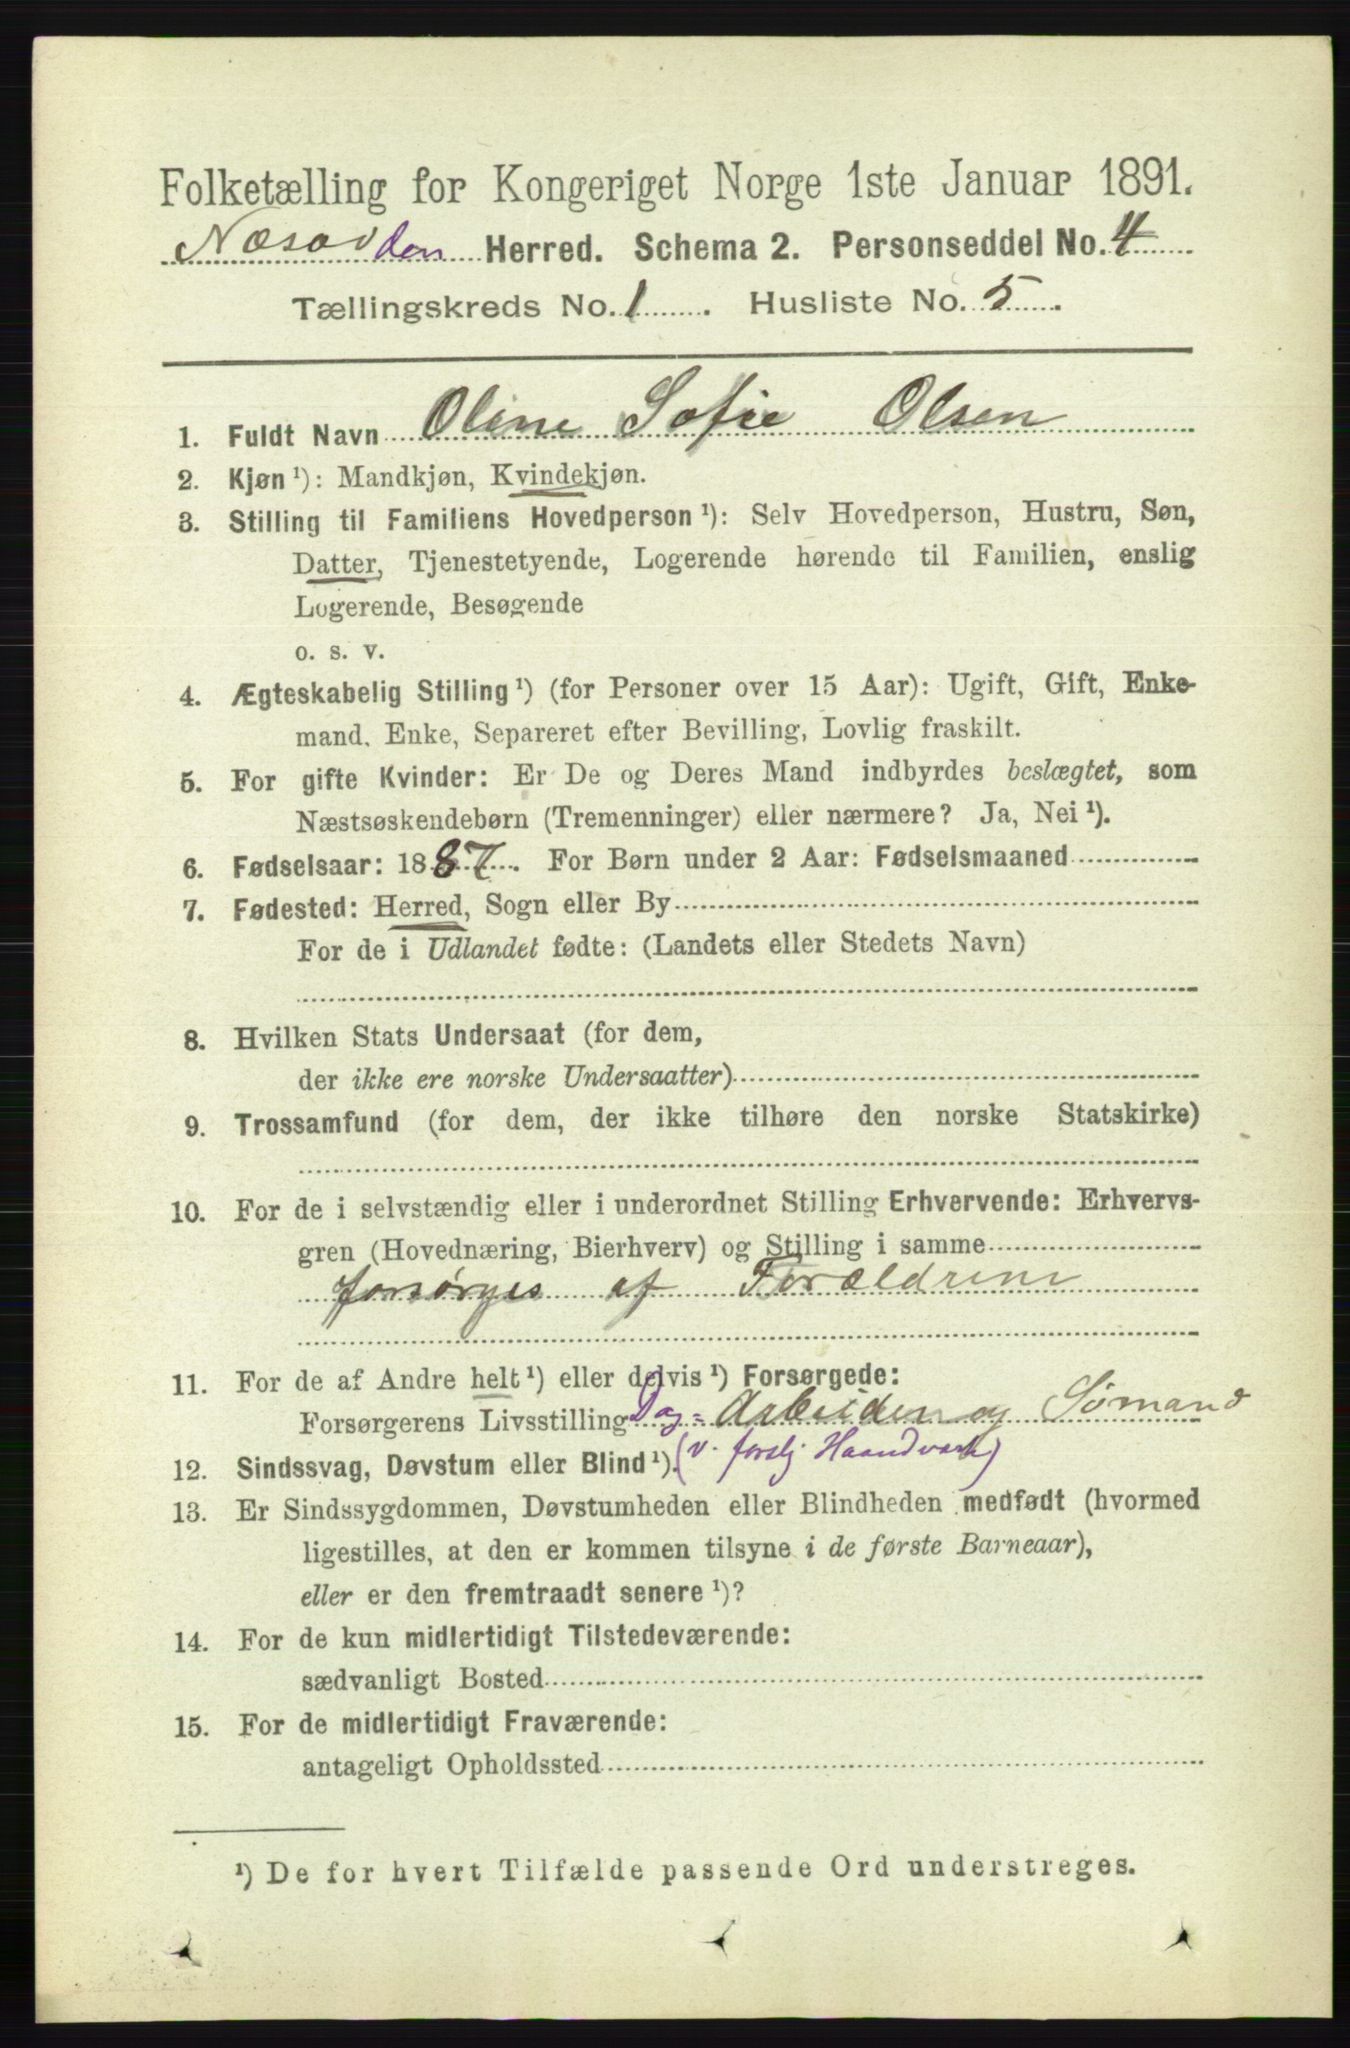 Folketælling for Kongeriget Norge 1ste Januar 1891.
Næsodden Herred. Schema 2. Personseddel No. 4
Tællingskreds No. 1. Husliste No. 5.
1. Fuldt Navn Oline Sofie Olsen
2. Kjøn ¹): Mandkjøn, Kvindekjøn.
3. Stilling til Familiens Hovedperson ¹): Selv Hovedperson, Hustru, Søn,
Datter, Tjenestetyende, Logerende hørende til Familien, enslig
Logerende, Besøgende
o. s. v.
4. Ægteskabelig Stilling ¹) (for Personer over 15 Aar): Ugift, Gift, Enke-
mand, Enke, Separeret efter Bevilling, Lovlig fraskilt.
5. For gifte Kvinder: Er De og Deres Mand indbyrdes beslægtet, som
Næstsøskendebørn (Tremenninger) eller nærmere? Ja, Nei ¹).
6. Fødselsaar: 1887. For Børn under 2 Aar: Fødselsmaaned
7. Fødested: Herred, Sogn eller By
For de i Udlandet fødte: (Landets eller Stedets Navn)
8. Hvilken Stats Undersaat (for dem,
der ikke ere norske Undersaatter)
9. Trossamfund (for dem, der ikke tilhøre den norske Statskirke)
10. For de i selvstændig eller i underordnet Stilling Erhvervende: Erhvervs-
gren (Hovednæring, Bierhverv) og Stilling i samme
forsørges af Forældrene
11. For de af Andre helt ¹) eller delvis ¹) Forsørgede:
Forsørgerens Livsstilling Dag= Arbeider og Sømand
12. Sindssvag, Døvstum eller Blind ¹). (v. forslj Haandværk)
13. Er Sindssygdommen, Døvstumheden eller Blindheden medfødt (hvormed
ligestilles, at den er kommen tilsyne i de første Barneaar),
eller er den fremtraadt senere ¹)?
14. For de kun midlertidigt Tilstedeværende:
sædvanligt Bosted
15. For de midlertidigt Fraværende:
antageligt Opholdssted
¹) De for hvert Tilfælde passende Ord understreges.